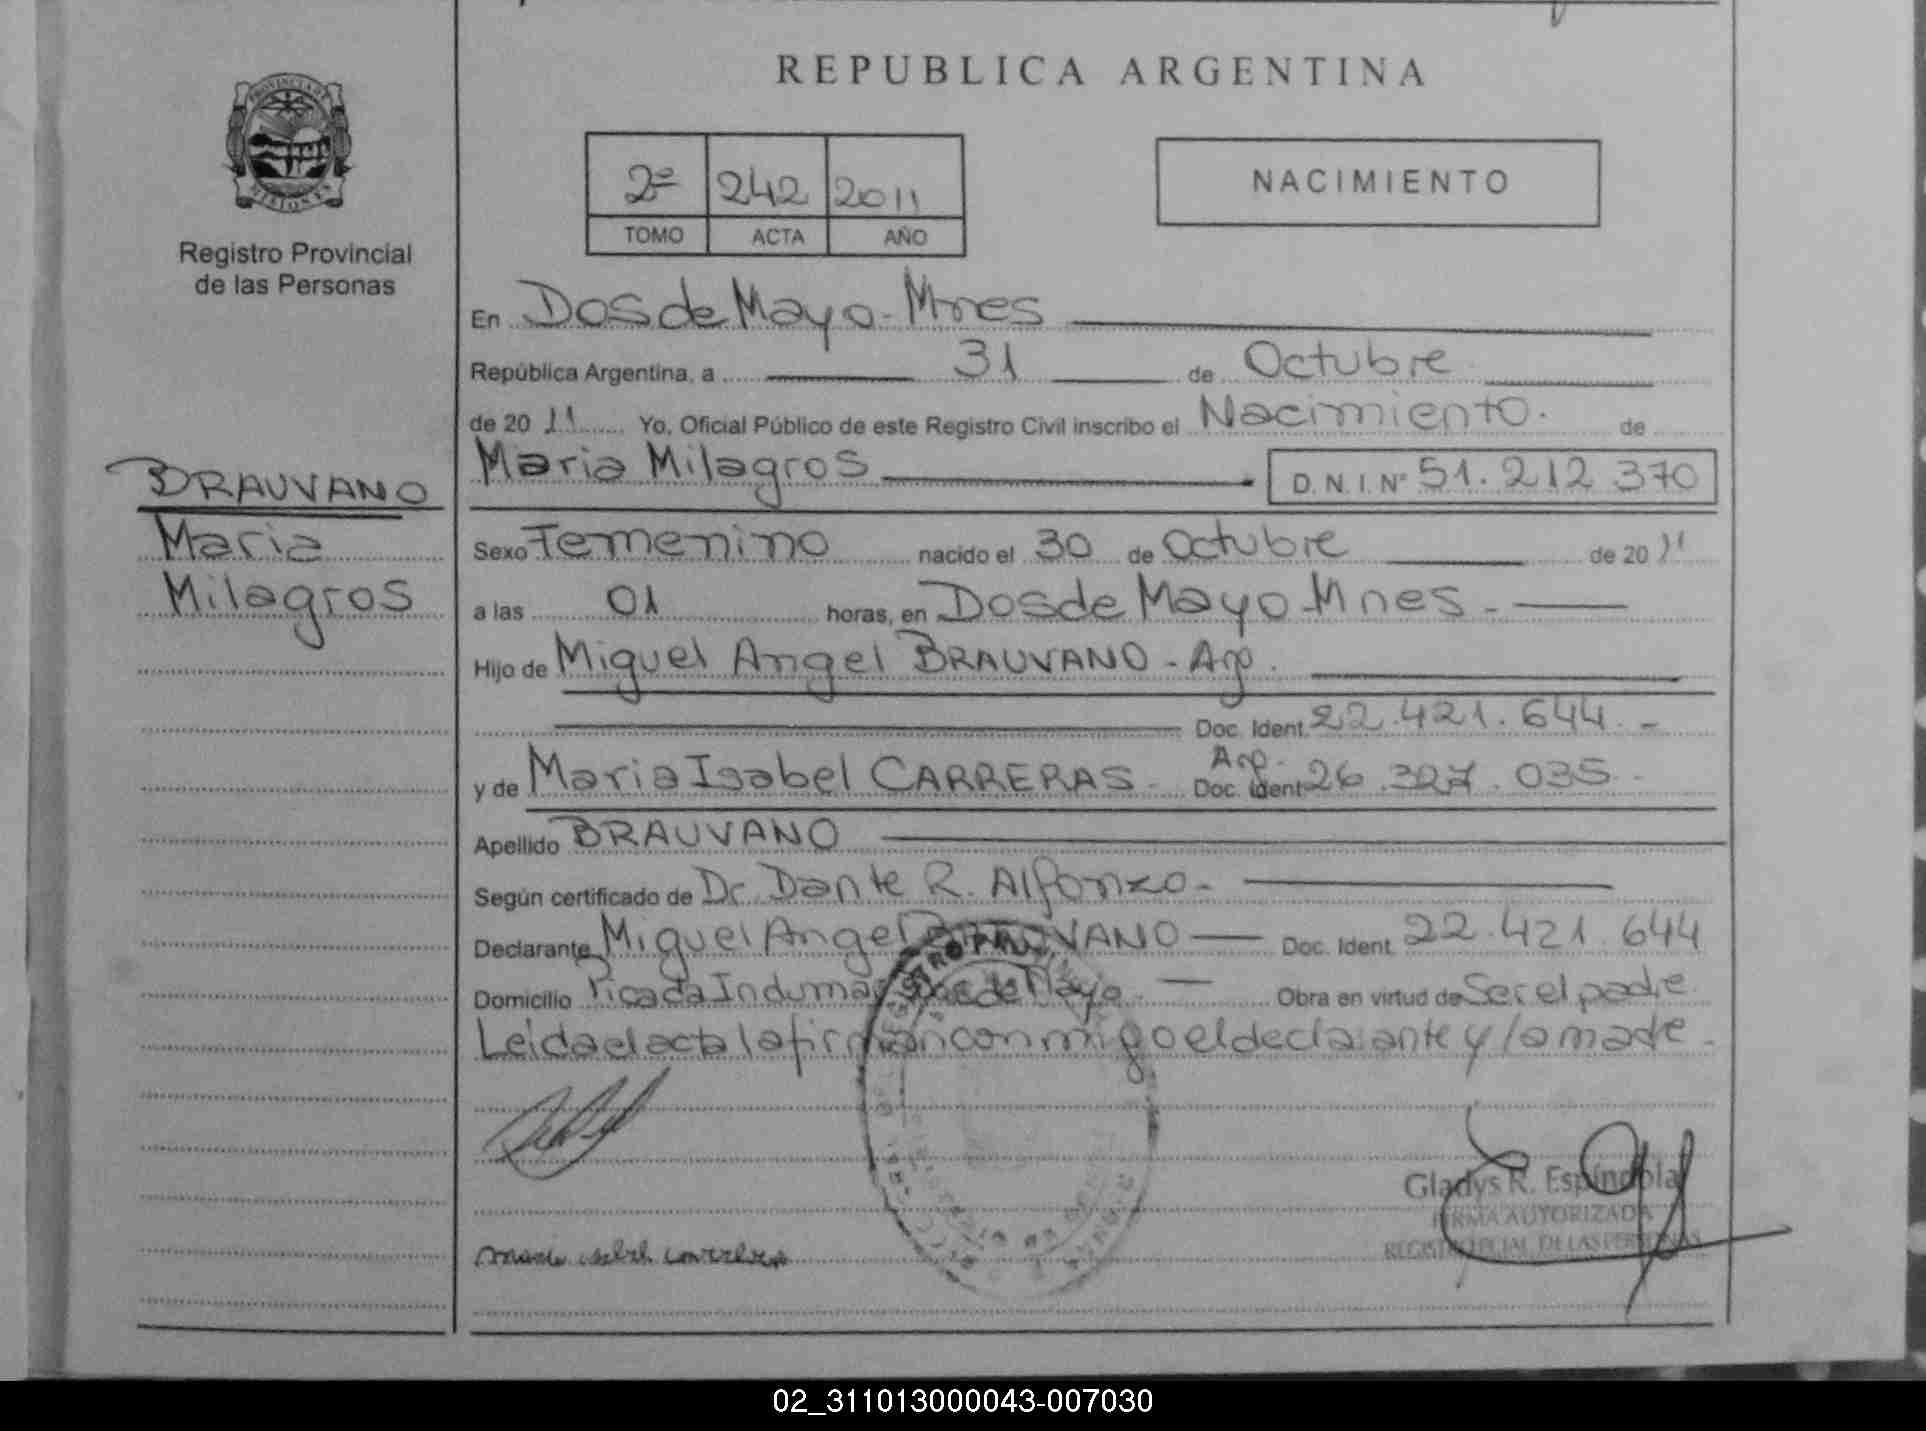 REPUBLICA ARGENTINA
PROVINCIA DE MISIONES
Registro Provincial
de las Personas
2º 242 2011
TOMO ACTA AÑO
NACIMIENTO
En Dos de Mayo - Mnes
República Argentina, a 31 de Octubre
de 20 11 Yo, Oficial Público de este Registro Civil inscribo el Nacimiento. de
Maria Milagros D. N. I. Nº 51.212.370
BRAUVANO
Maria
Milagros
Sexo Femenino nacido el 30 de Octubre de 20 11
a las 01 horas, en Dos de Mayo Mnes -
Hijo de Miguel Angel BRAUVANO - Arg.
Doc. Ident. 22.421.644. -
y de Maria Isabel CARRERAS - Arg. Doc. Ident. 26.327.035 -
Apellido BRAUVANO
Según certificado de Dr. Dante R. Alfonzo -
Declarante Miguel Angel BRAUVANO Doc. Ident. 22.421.644
Domicilio Picada Indumar Dos de Mayo - Obra en virtud de Ser el padre
Leida el acta la firman conmigo el declarante y la madre -
Gladys R. Espíndola
FIRMA AUTORIZADA
REGISTRO PCIAL. DE LAS PERSONAS
maria isabel carreras
02_311013000043-007030